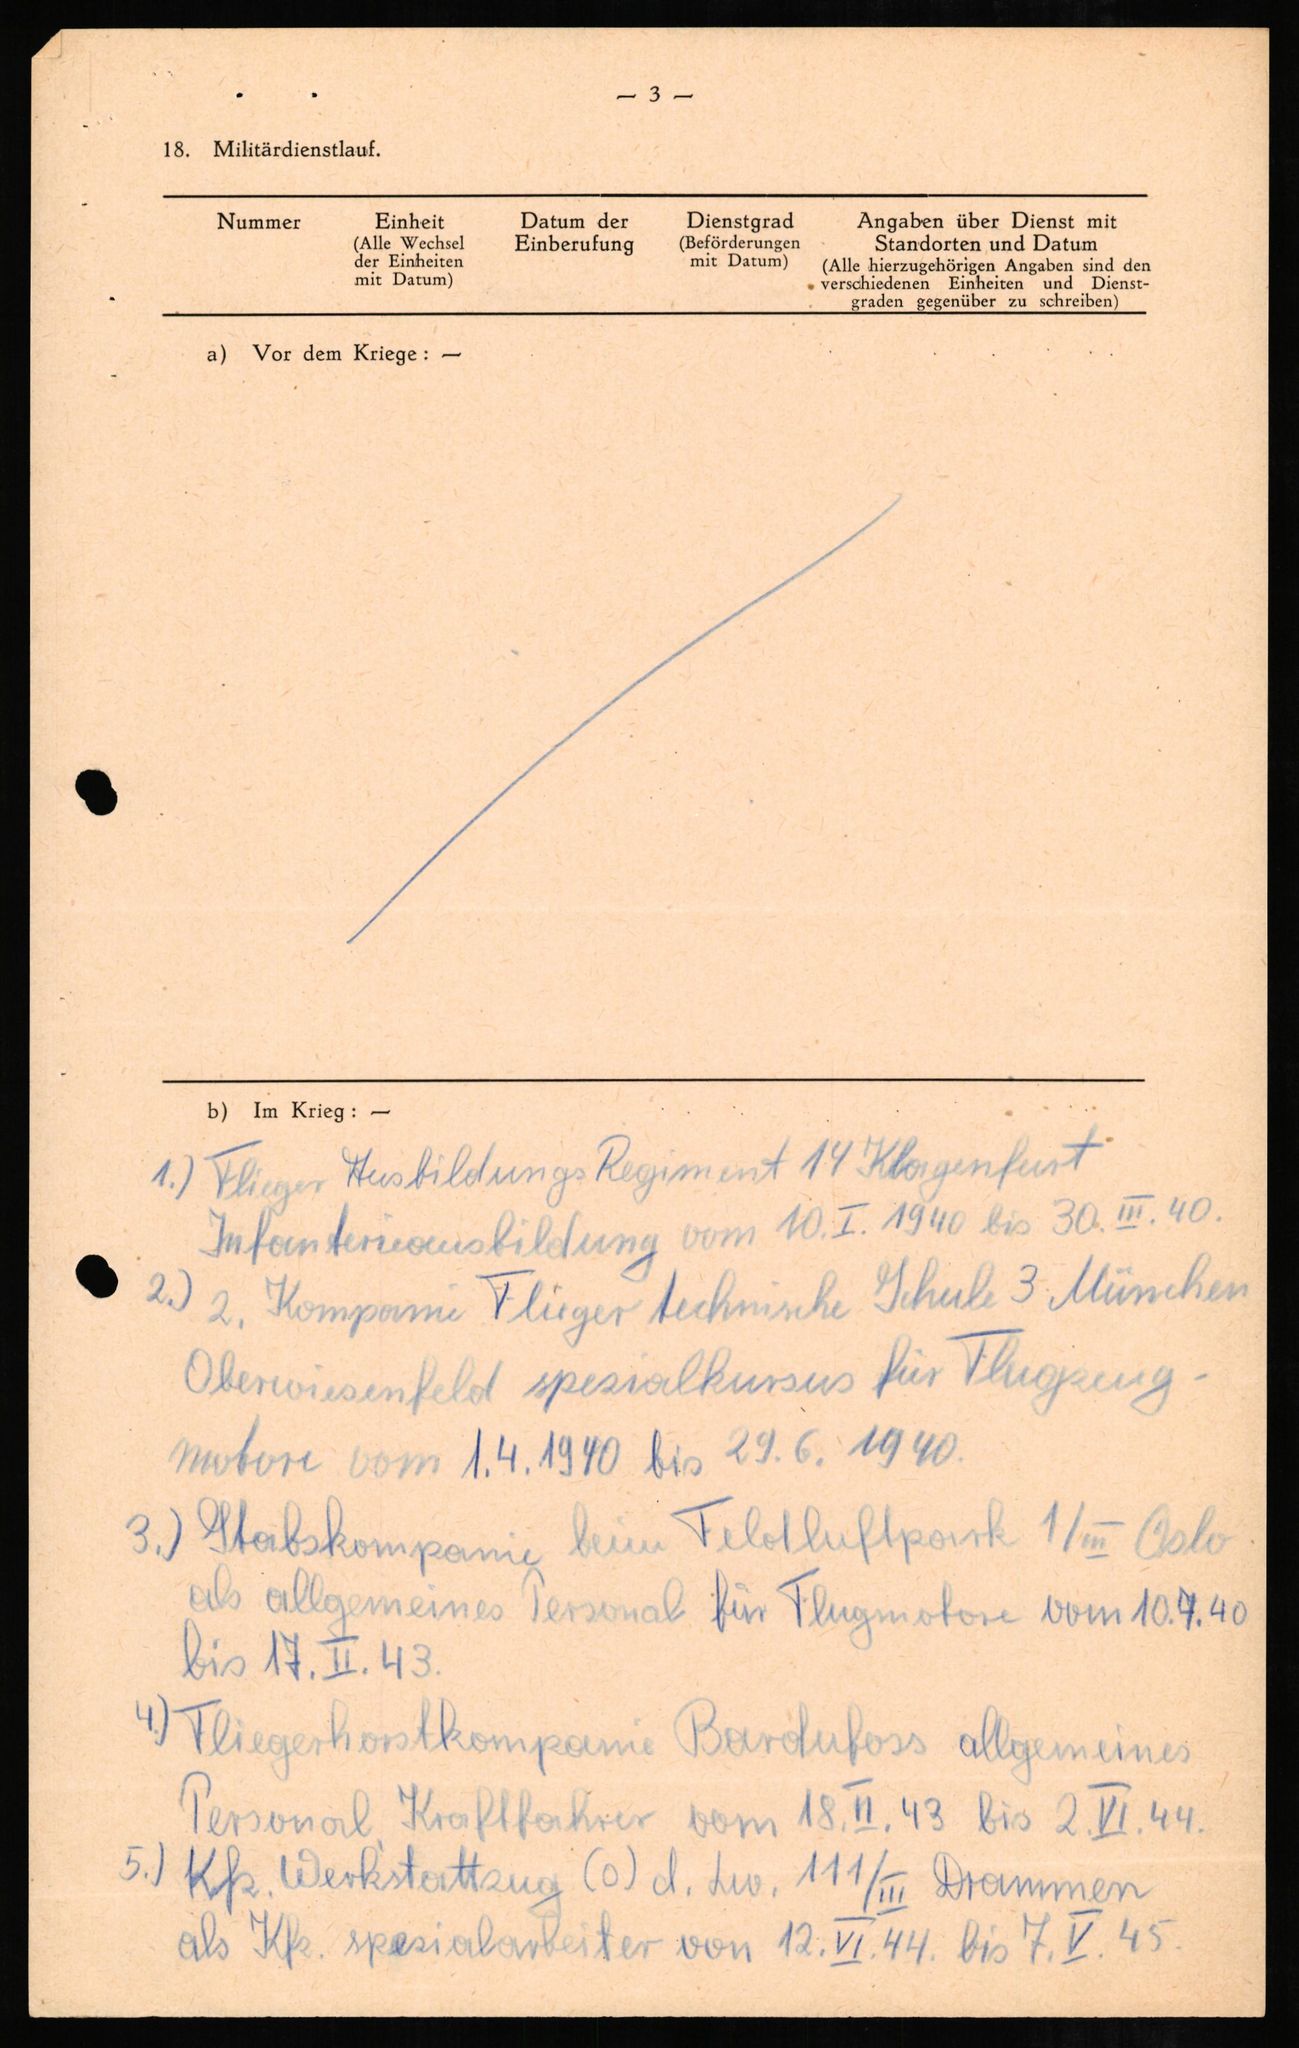 — 3 —
18. Militärdienstlauf.
Nummer
Einheit
(Alle Wechsel
der Einheiten
mit Datum)
Datum der
Einberufung
Dienstgrad
(Beförderungen
mit Datum)
Angaben über Dienst mit
Standorten und Datum
(Alle hierzugehörigen Angaben sind den
verschiedenen Einheiten und Dienst-
graden gegenüber zu schreiben)
a) Vor dem Kriege: —
b) Im Krieg: —
1.) Flieger Ausbildungs Regiment 14 Klagenfurt
Infanterieausbildung vom 10. I. 1940 bis 30. III. 40.
2.) 2. Kompanie Flieger technische Schule 3 München
Oberwiesenfeld spezialkursus für Flugzeug-
motore vom 1.4.1940 bis 29.6.1940.
3.) Stabskompanie beim Feldluftpark 1/III Oslo
als allgemeines Personal für Flugmotore vom 10.7.40
bis 17. II. 43.
4.) Fliegerhorstkompanie Bardufoss allgemeines
Personal, Kraftfahrer vom 18. II. 43 bis 2. VI. 44.
5.) Kfz. Werkstattzug (o) d. Lw. 111/III Drammen
als Kfz. spezialarbeiter von 12. VI. 44. bis 7. V. 45.